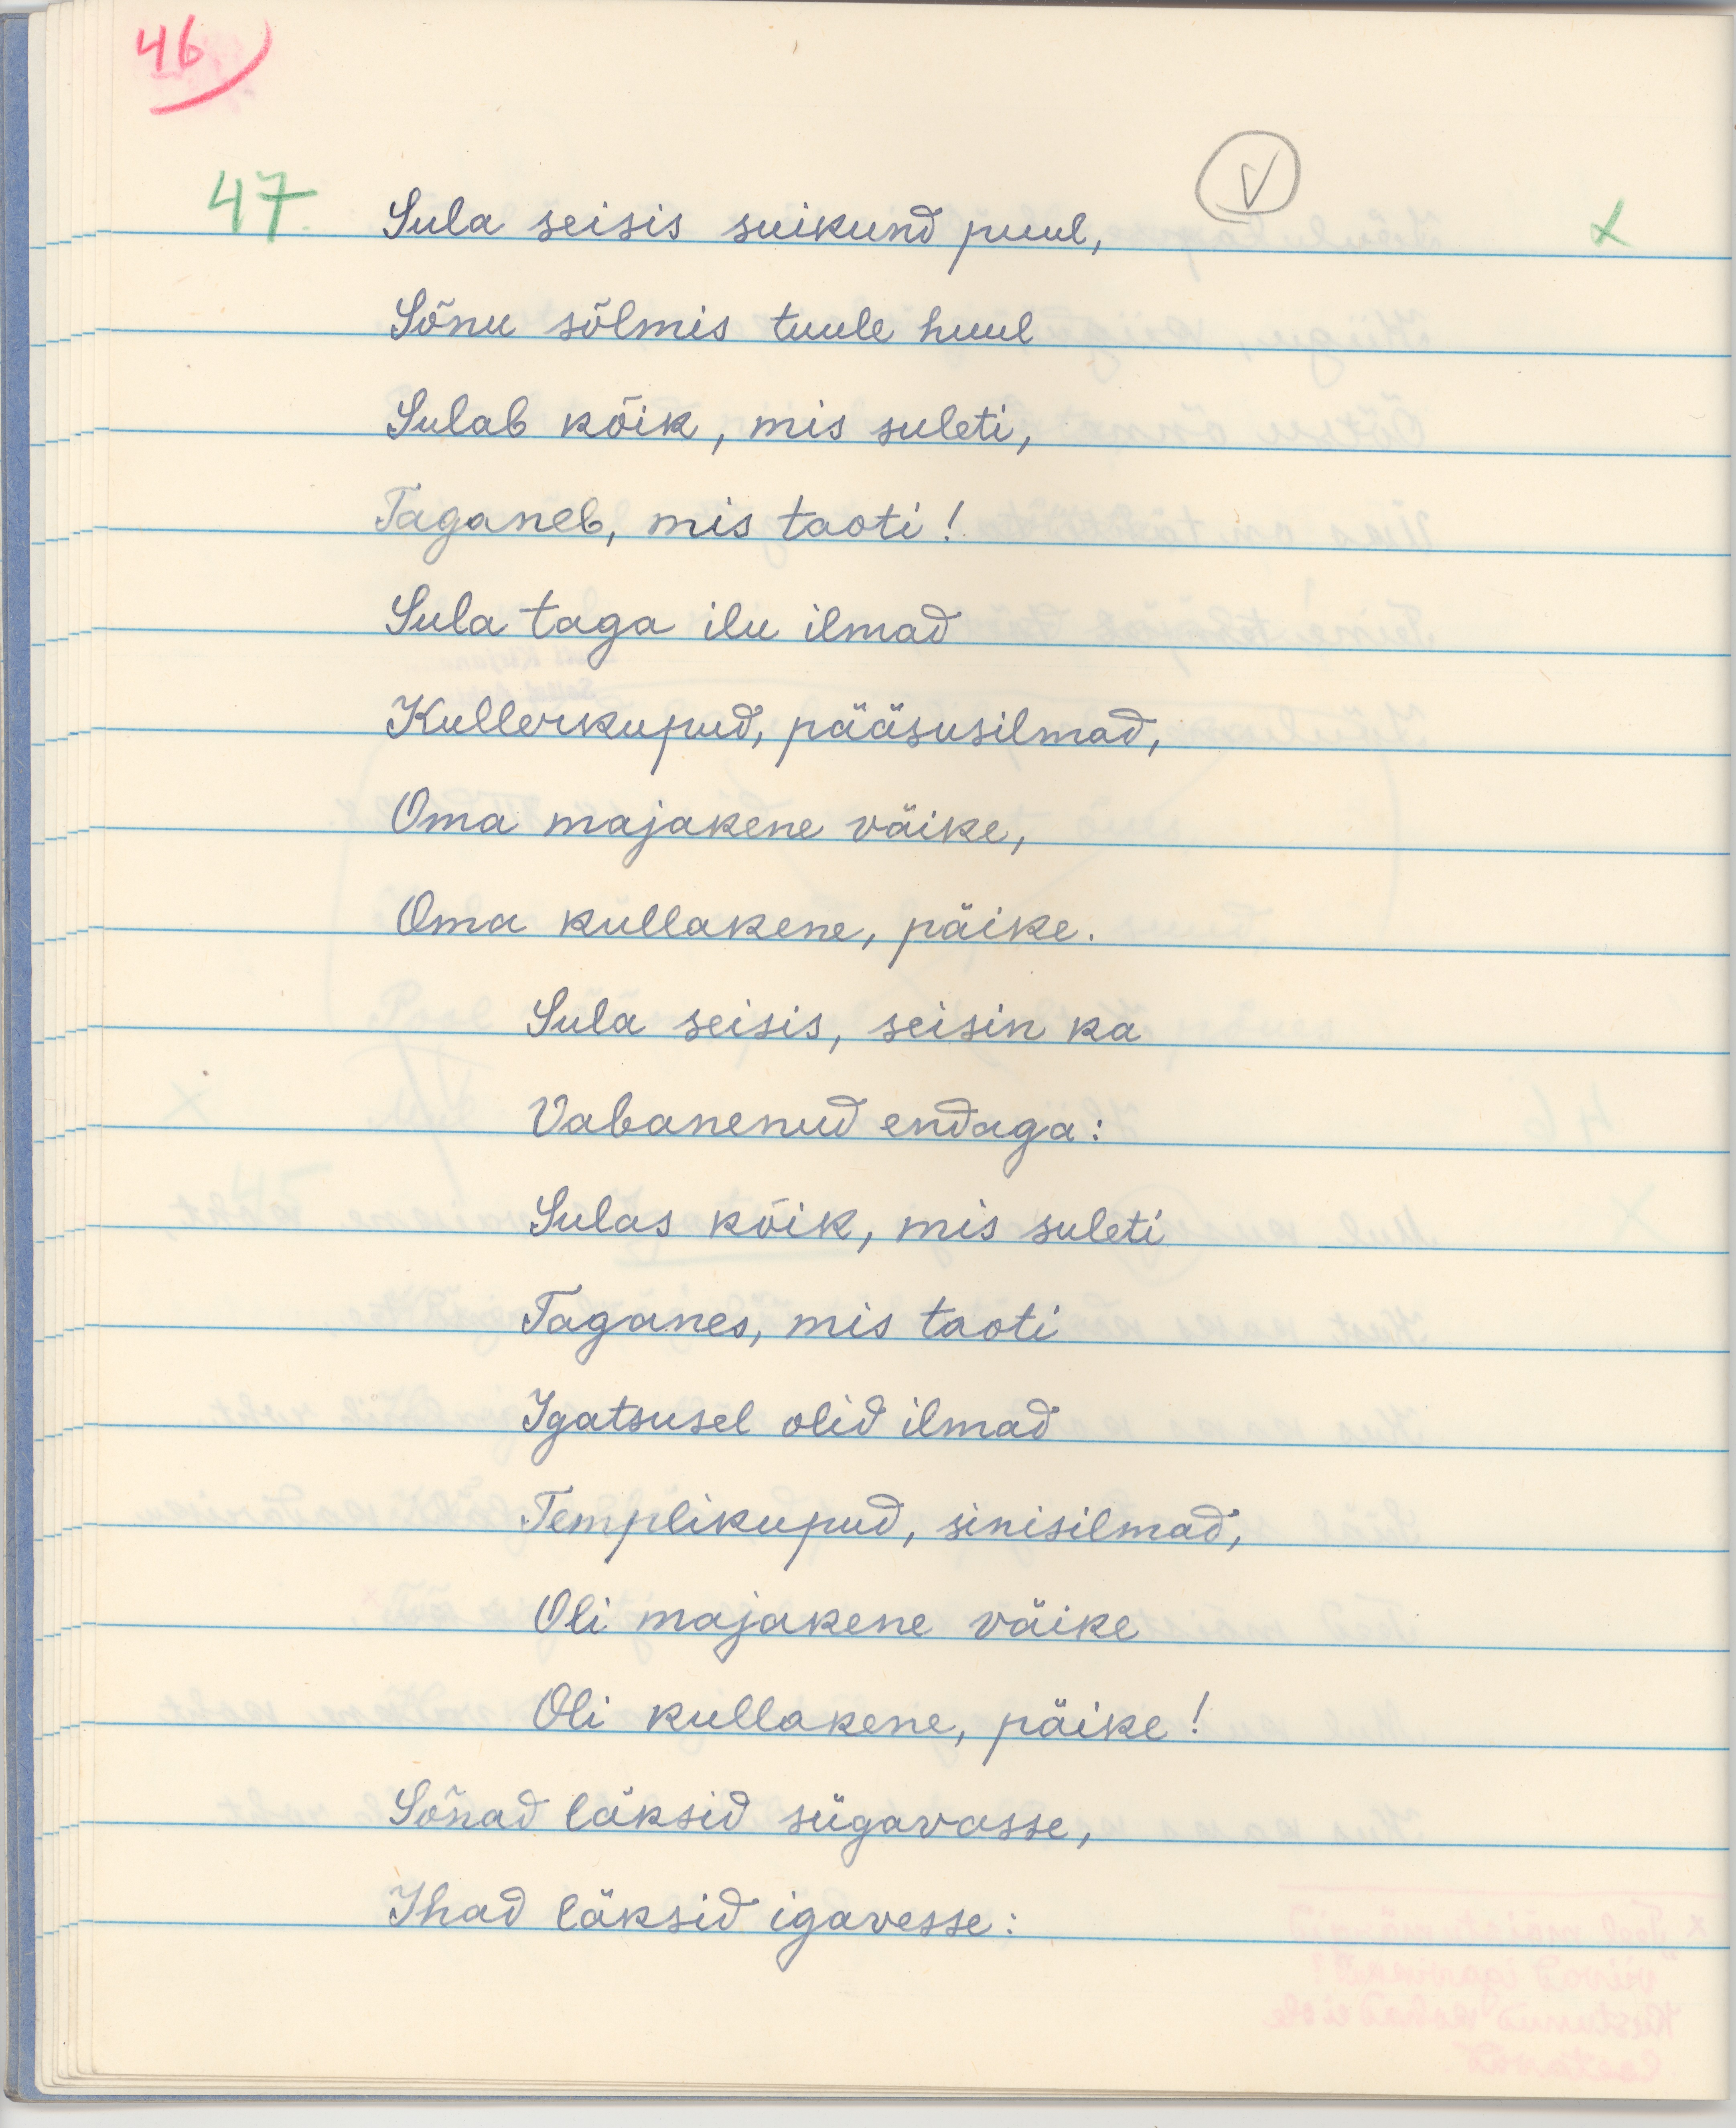 46)
V
47. Sula seisis suikund puul, x
Sõnu sõlmis tuule huul
Sulab kõik, mis suleti,
Taganeb, mis taoti!
Sula taga ilu ilmad
Kullerkupud, pääsusilmad,
Oma majakene väike,
Oma kullakene, päike.
Sula seisis, seisin ka
Vabanenud endaga:
Sulas kõik, mis suleti
Taganes, mis taoti
Igatsusel olid ilmad
Templikupud, sinisilmad,
Oli majakene väike
Oli kullakene, päike!
Sõnad läksid sügavasse,
Ihad läksid igavesse: